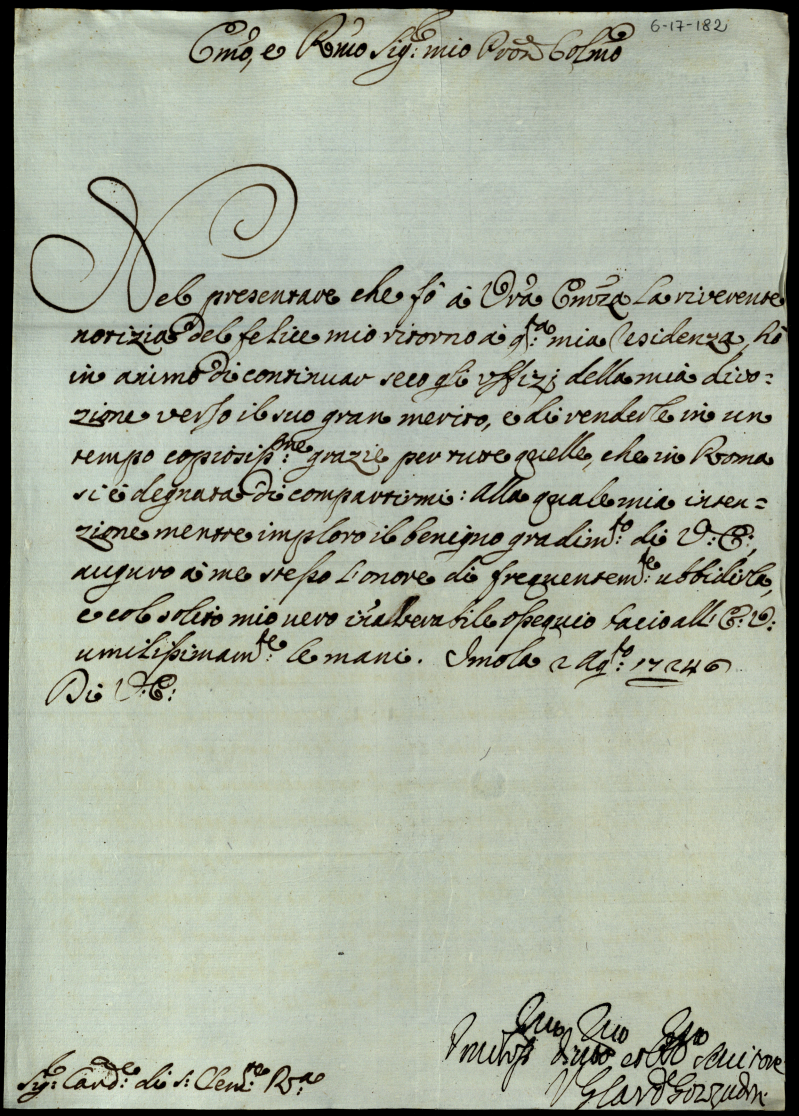 6-17-182
Emo, e Rmo Sig:re mio Pron Colmo
Nel presentare che fò à Vrã Emza la riverente
notizia del felice mio ritorno à q:ta mia residenza, hò
in animo di continuar seco gli uffizj della mia divo-
zione verso il suo gran merito, e di renderle in un
tempo copiosiss:me grazie per tutte quelle, che in Roma
si è degnata di compartirmi: alla quale mia inten-
zione mentre imploro il benigno gradim:to di V: E:,
auguro à me stesso l'onore di frequentem:te ubbidirla,
e col solito mio vero inalterabile ossequio bacio all' E: V:
umilissimam:te le mani. Imola 2 Ag:to 1724
Di V: E:
Sig:re Card:e di s: Clem:te R:a
Umo Dmo
Servitore
G Card Gozzadini